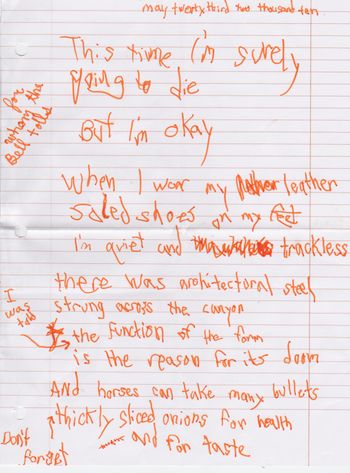 may twenty third two thousand ten
This time I'm surely
going to die
for
whom the
Bell tolls
But I'm okay
When I wear my leather
soled shoes on my feet
I'm quiet and trackless
there was architectoral steel
strung across the canyon
I
was
told
the function of the form
is the reason for its doom
AND horses can take many bullets
thickly sliced onions for health
and for taste
Don't
forget